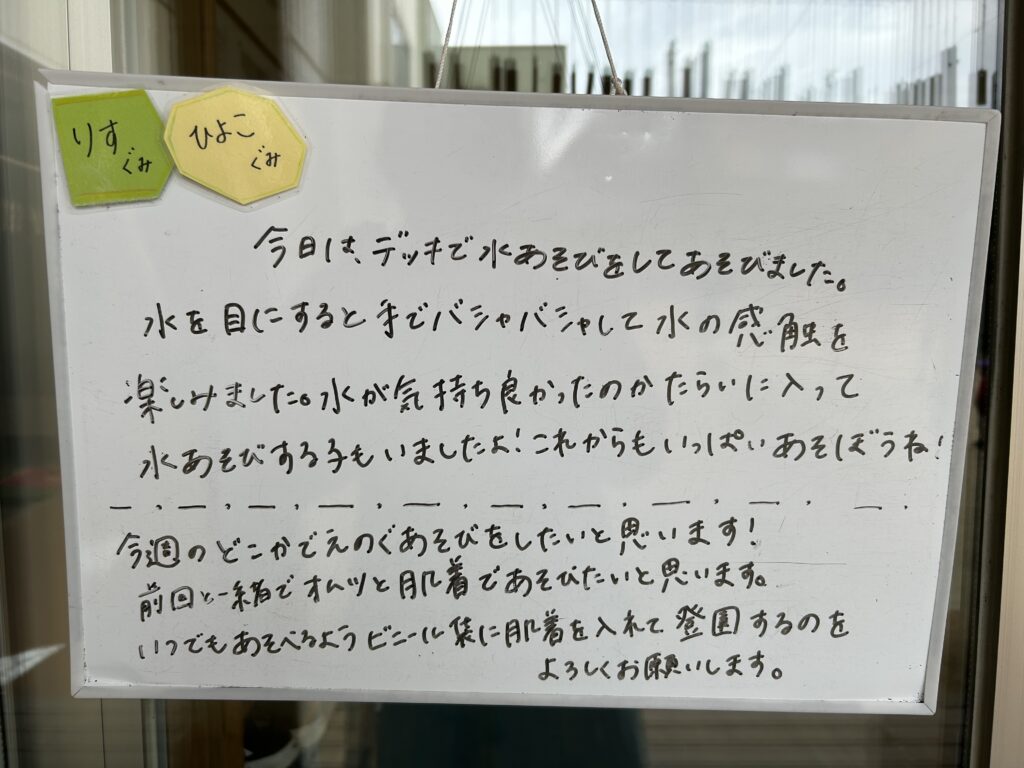 りす
ぐみ
ひよこ
ぐみ
今日は、デッキで水あそびをしてあそびました。
水を目にすると手でバシャバシャして水の感触を
楽しみました。水が気持ち良かったのかたらいに入って
水あそびする子もいましたよ!これからもいっぱいあそぼうね!
今週のどこかでえのぐあそびをしたいと思います!
前回と一緒でオムツと肌着であそびたいと思います。
いつでもあそべるようビニール袋に肌着を入れて登園するのを
よろしくお願いします。